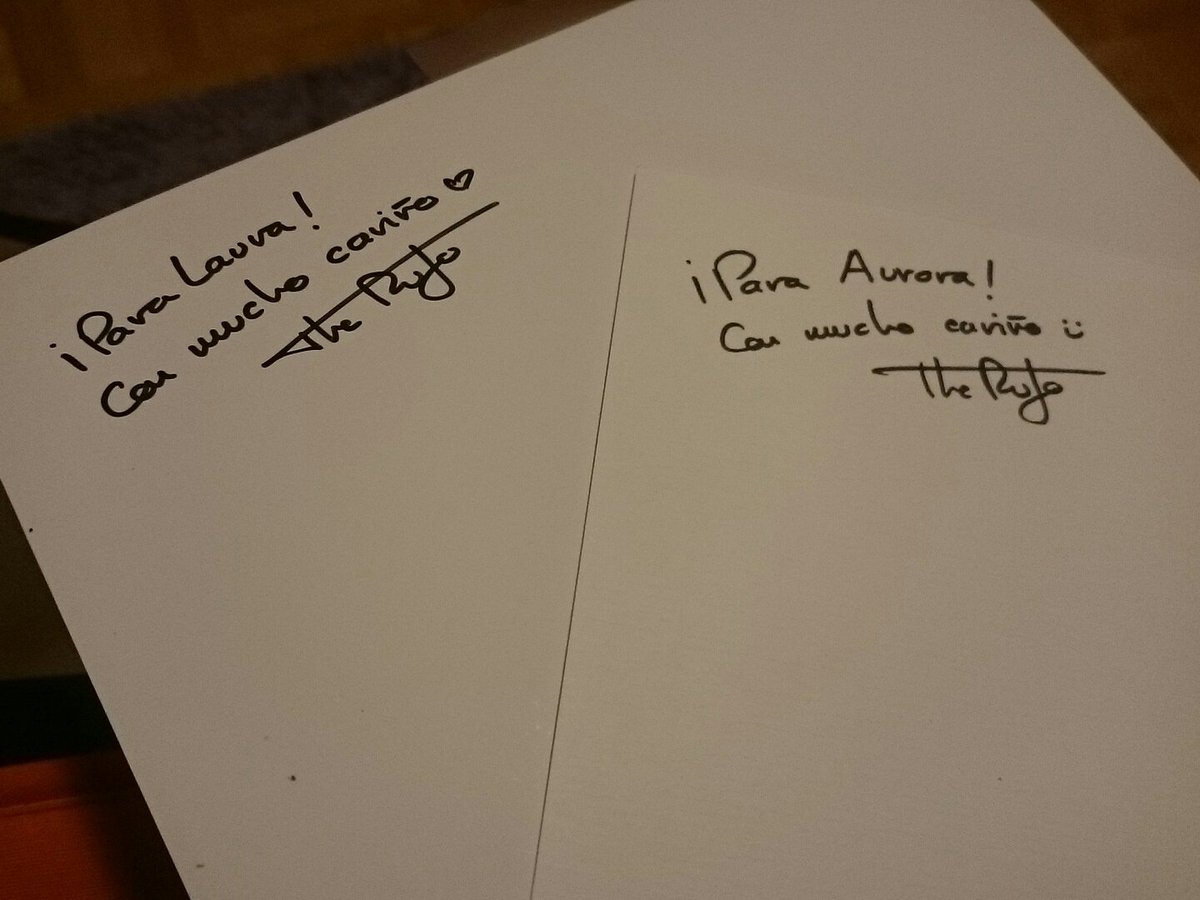 ¡Para Laura!
Con mucho cariño ♡
The Rujo
¡Para Aurora!
Con mucho cariño :)
The Rujo